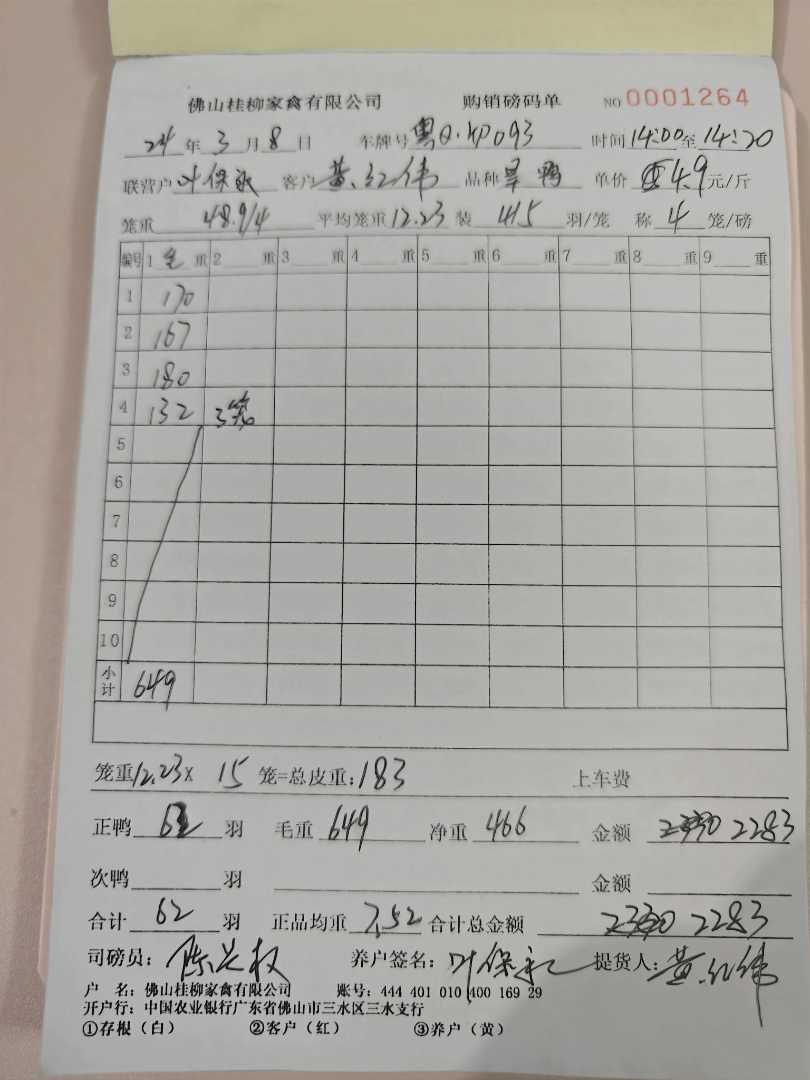 佛山桂柳家禽有限公司 购销磅码单 NO 0001264
24 年 3 月 8 日 车牌号 粤Q·XP093 时间 14:00 至 14:20
联营户 叶保永 客户 黄红伟 品种 旱鸭 单价 4.9 元/斤
笼重 48.9/4 平均笼重 12.23 装 4/5 羽/笼 称 4 笼/磅
编号 1 毛 重 2 重 3 重 4 重 5 重 6 重 7 重 8 重 9 重
1 170
2 167
3 180
4 132 3笼
5
6
7
8
9
10
小计 649
笼重 12.23 × 15 笼=总皮重: 183 上车费
正鸭 62 羽 毛重 649 净重 466 金额 2283
次鸭 羽 金额
合计 62 羽 正品均重 7.52 合计总金额 2283
司磅员: 养户签名: 叶保永 提货人: 黄红伟
户 名: 佛山桂柳家禽有限公司 账号: 444 401 010 400 169 29
开户行: 中国农业银行广东省佛山市三水区三水支行
①存根(白) ②客户(红) ③养户(黄)